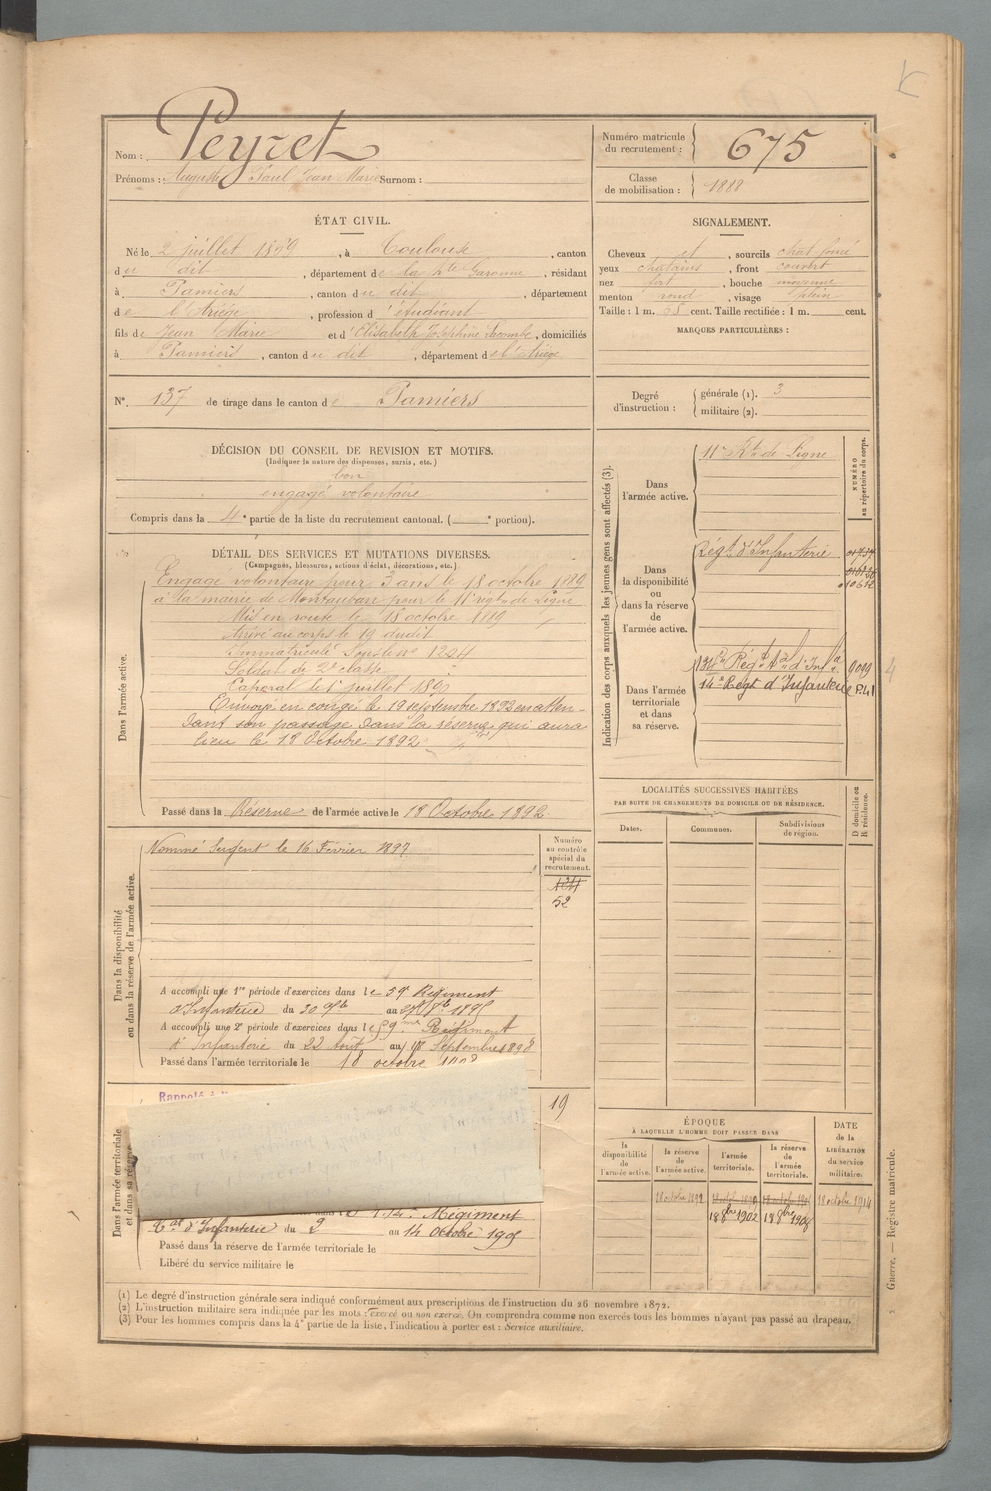 Peyret
Nom :
Prénoms : Auguste Paul Jean Marie Surnom :
Numéro matricule du recrutement : 675
Classe de mobilisation : 1888
ÉTAT CIVIL.
Né le 2 juillet 1869, à Toulouse, canton
du dit, département de la Hte Garonne, résidant
à Pamiers, canton du dit, département
de l'Ariège, profession d'étudiant
fils de Jean Marie et d'Elisabeth Joséphine Lacombe, domiciliés
à Pamiers, canton du dit, département de l'Ariège
N° 137 de tirage dans le canton de Pamiers
SIGNALEMENT.
Cheveux et, sourcils chat foncé
yeux chatains, front couvert
nez fort, bouche moyenne
menton rond, visage plein
Taille : 1 m. 68 cent. Taille rectifiée : 1 m. cent.
MARQUES PARTICULIÈRES :
Degré d'instruction : générale (1). 3
militaire (2).
DÉCISION DU CONSEIL DE REVISION ET MOTIFS.
(Indiquer la nature des dispenses, sursis, etc.)
bon
engagé volontaire
Compris dans la 4e partie de la liste du recrutement cantonal. ( e portion).
DÉTAIL DES SERVICES ET MUTATIONS DIVERSES.
(Campagnes, blessures, actions d'éclat, décorations, etc.)
Dans l'armée active.
Engagé volontaire pour 3 ans le 18 octobre 1889
à la mairie de Montauban pour le 11e régt de Ligne
Mis en route le 18 octobre 1889
Arrivé au corps le 19 dudit
Immatriculé sous le No 1204
Soldat de 2e classe
Caporal le 1er juillet
Envoyé en congé le 19 septembre 1892 en atten-
dant son passage dans la réserve qui aura
lieu le 18 Octobre 1892
Passé dans la Réserve de l'armée active le 18 Octobre 1892
Dans la disponibilité ou dans la réserve de l'armée active.
Nommé Sergent le 16 Février 1897
Numéro au contrôle spécial du recrutement.
52
A accompli une 1re période d'exercices dans le 59e Régiment
d'Infanterie du 30 7bre au 1895
A accompli une 2e période d'exercices dans le 59me Régiment
d'Infanterie du 22 Août au Septembre 1898
Passé dans l'armée territoriale le 18 octobre
Dans l'armée territoriale et dans sa réserve
Rappelé à
19
Régiment
d'Infanterie du 2 au 14 Octobre 1905
Passé dans la réserve de l'armée territoriale le
Libéré du service militaire le
Indication des corps auxquels les jeunes gens sont affectés (3).
NUMÉRO au répertoire du corps.
Dans l'armée active. 11e Rt de Ligne
Dans la disponibilité ou dans la réserve de l'armée active. Régt d'Infanterie
Dans l'armée territoriale et dans sa réserve. 131e Régt d'Infie 0099
14e Régt d'Infanterie P.41
4
LOCALITÉS SUCCESSIVES HABITÉES
PAR SUITE DE CHANGEMENTS DE DOMICILE OU DE RÉSIDENCE.
Dates. Communes. Subdivisions de région. D domicile ou R résidence.
ÉPOQUE
À LAQUELLE L'HOMME DOIT PASSER DANS
la disponibilité de l'armée active. la réserve de l'armée active. l'armée territoriale. la réserve de l'armée territoriale. DATE de la LIBÉRATION du service militaire.
18 octobre 1892 18 octobre 1914
18 8bre 1902 18 8bre 1908
Guerre. — Registre matricule.
(1) Le degré d'instruction générale sera indiqué conformément aux prescriptions de l'instruction du 26 novembre 1872.
(2) L'instruction militaire sera indiquée par les mots : exercé ou non exercé. On comprendra comme non exercés tous les hommes n'ayant pas passé au drapeau.
(3) Pour les hommes compris dans la 4e partie de la liste, l'indication à porter est : Service auxiliaire.